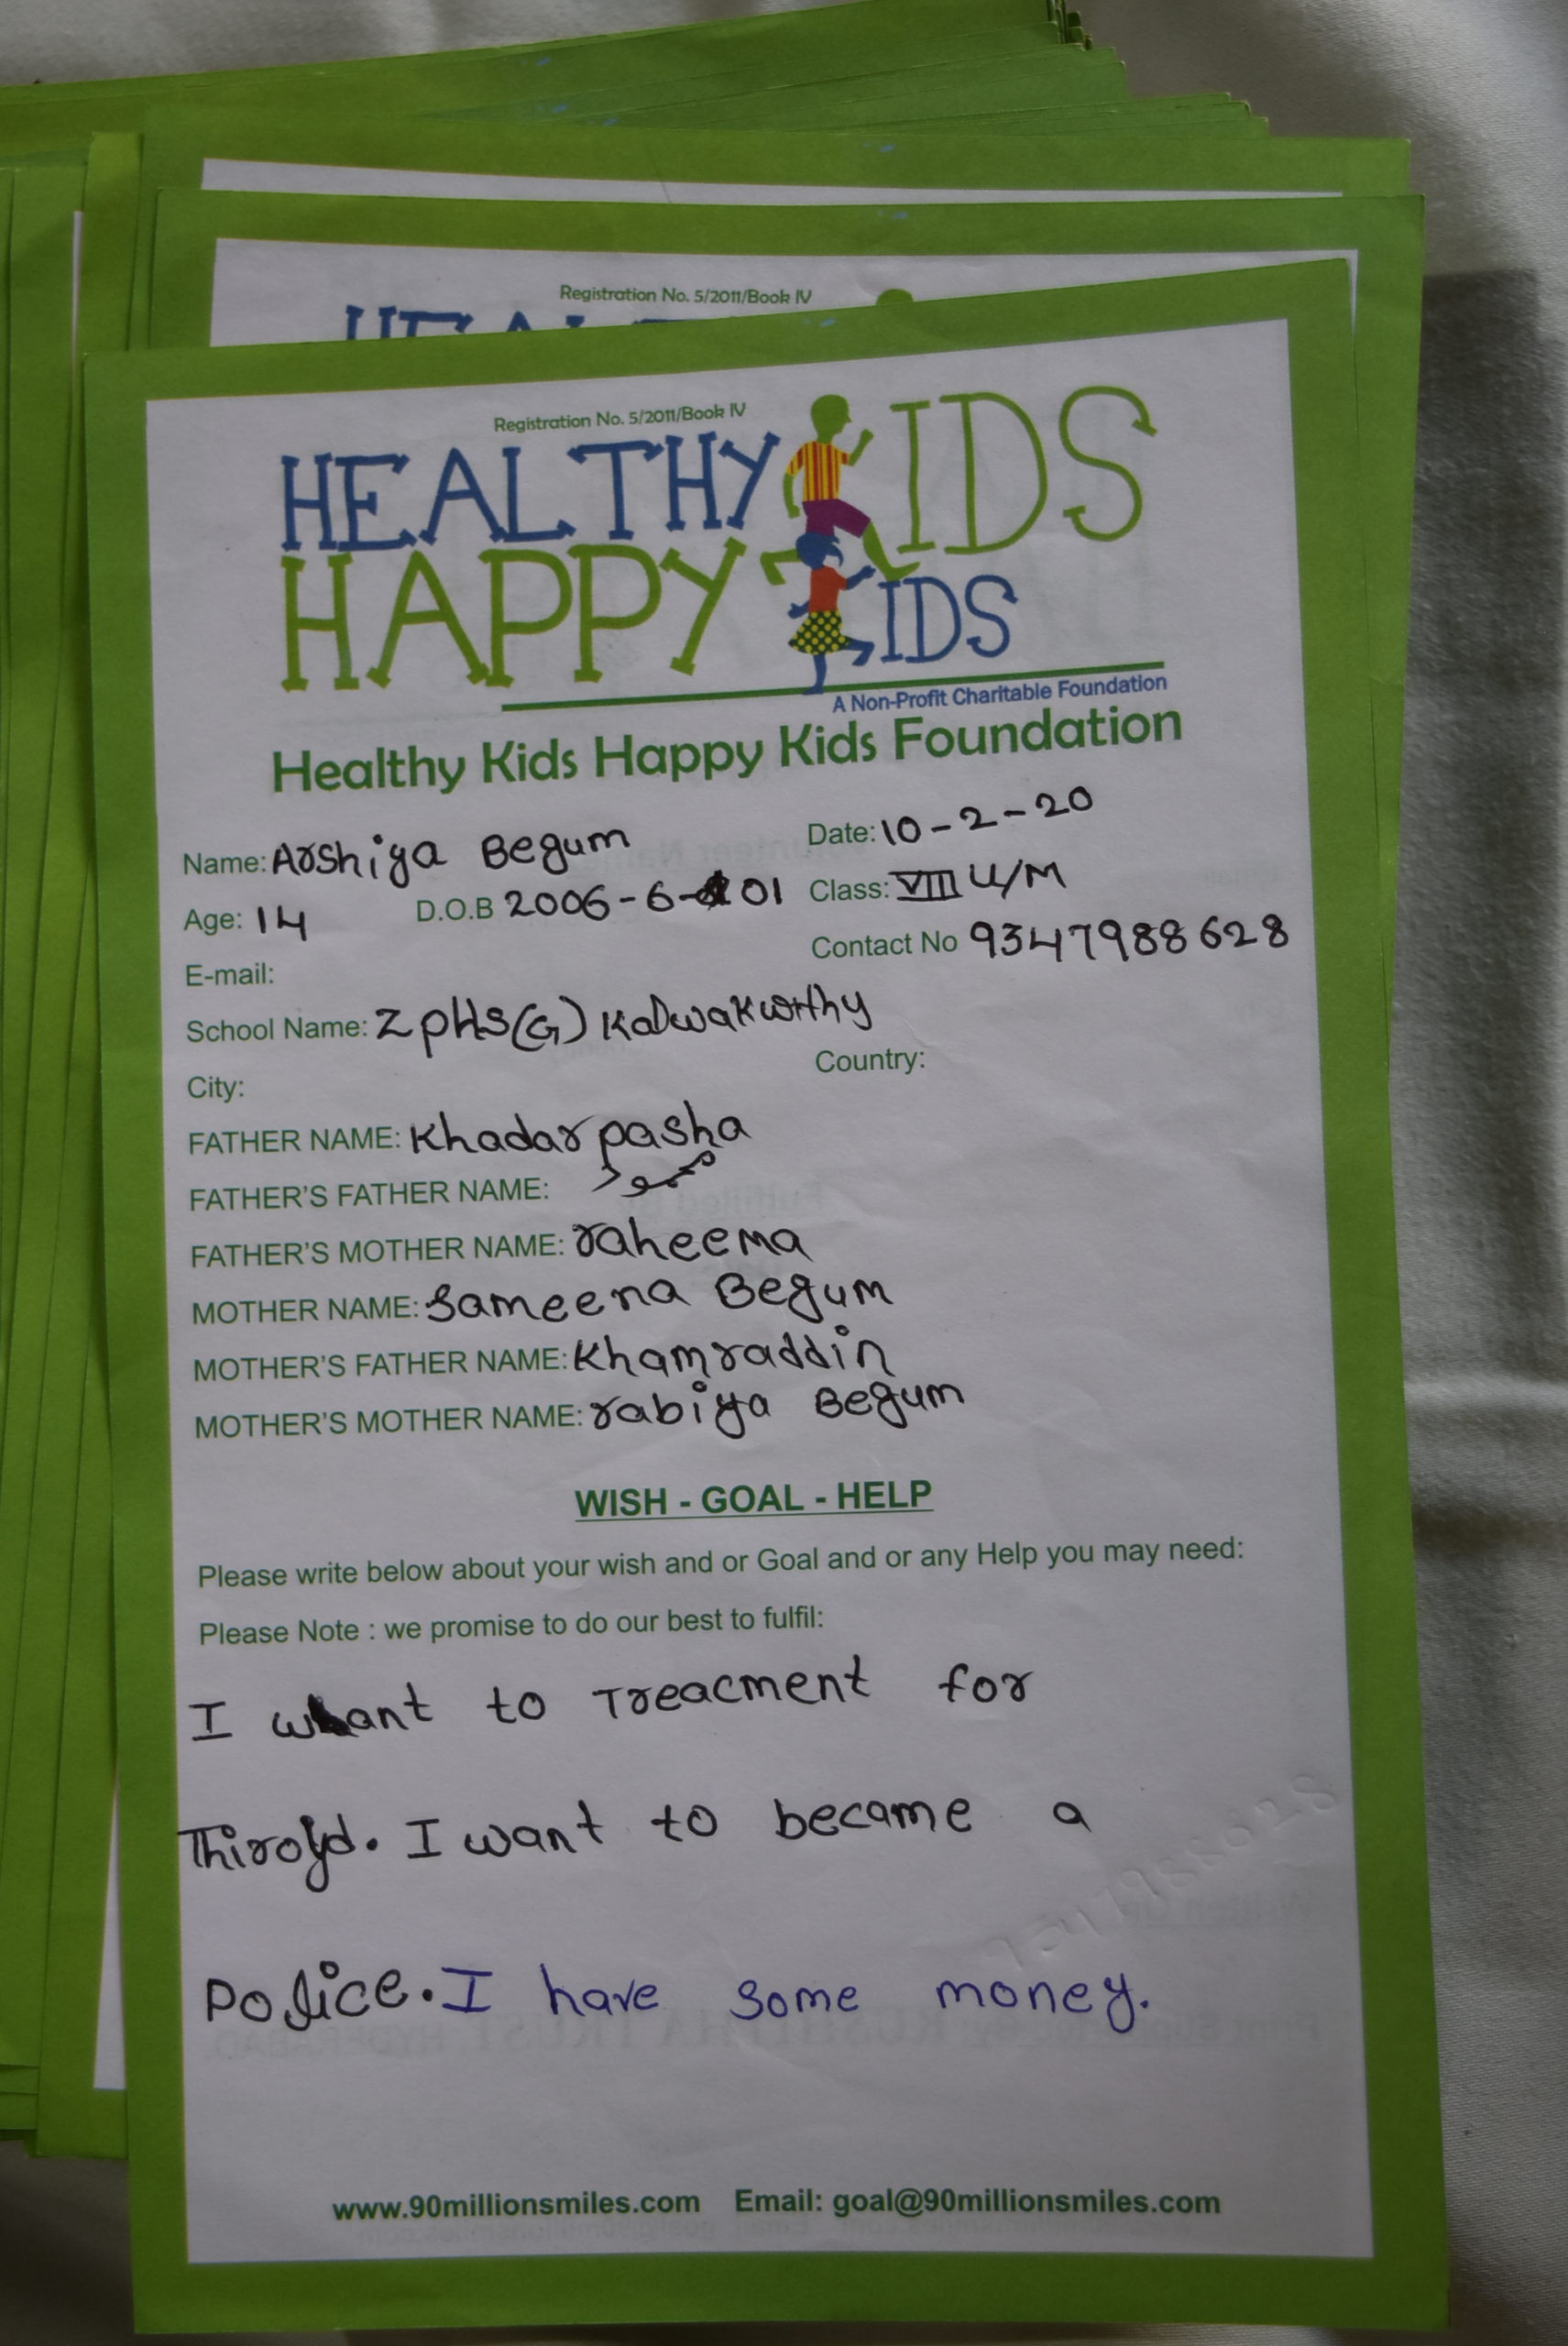 Registration No. 5/2011/Book IV
Registration No. 5/2011/Book IV
HEALTHY KIDS
HAPPY KIDS
A Non-Profit Charitable Foundation
Healthy Kids Happy Kids Foundation
Name: Arshiya Begum Date: 10-2-20
Age: 14 D.O.B 2006-6-01 Class: VIII U/M
Contact No 9347988628
E-mail:
School Name: ZPHS(G) Kalwakurthy
City: Country:
FATHER NAME: Khadar pasha
FATHER'S FATHER NAME:
FATHER'S MOTHER NAME: raheema
MOTHER NAME: Sameena Begum
MOTHER'S FATHER NAME: Khamraddin
MOTHER'S MOTHER NAME: rabiya Begum
WISH - GOAL - HELP
Please write below about your wish and or Goal and or any Help you may need:
Please Note : we promise to do our best to fulfil:
I want to Treacment for
Thiroyd. I want to became a
Police. I have some money.
www.90millionsmiles.com Email: goal@90millionsmiles.com